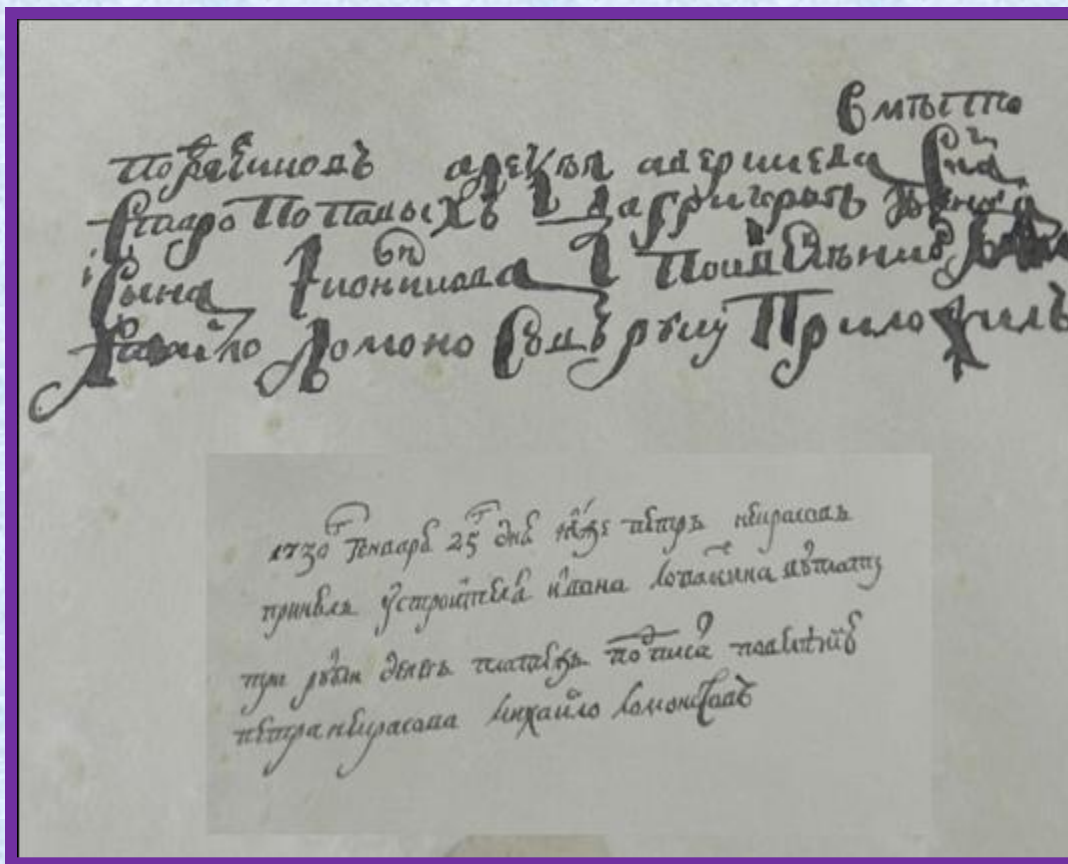 вмѣсто
подрядчиковъ алексѣя аверкиева сна
старопоповыхъ да григорья
сына иконникова по ихъ велѣнию
михайло ломоносовъ руку приложилъ
1730 генваря 25 дня петръ некрасовъ
принялъ у строителя ивана лопаткина
три рубли денегъ платежъ подписалъ по велѣнию
петра некрасова михайло ломоносовъ